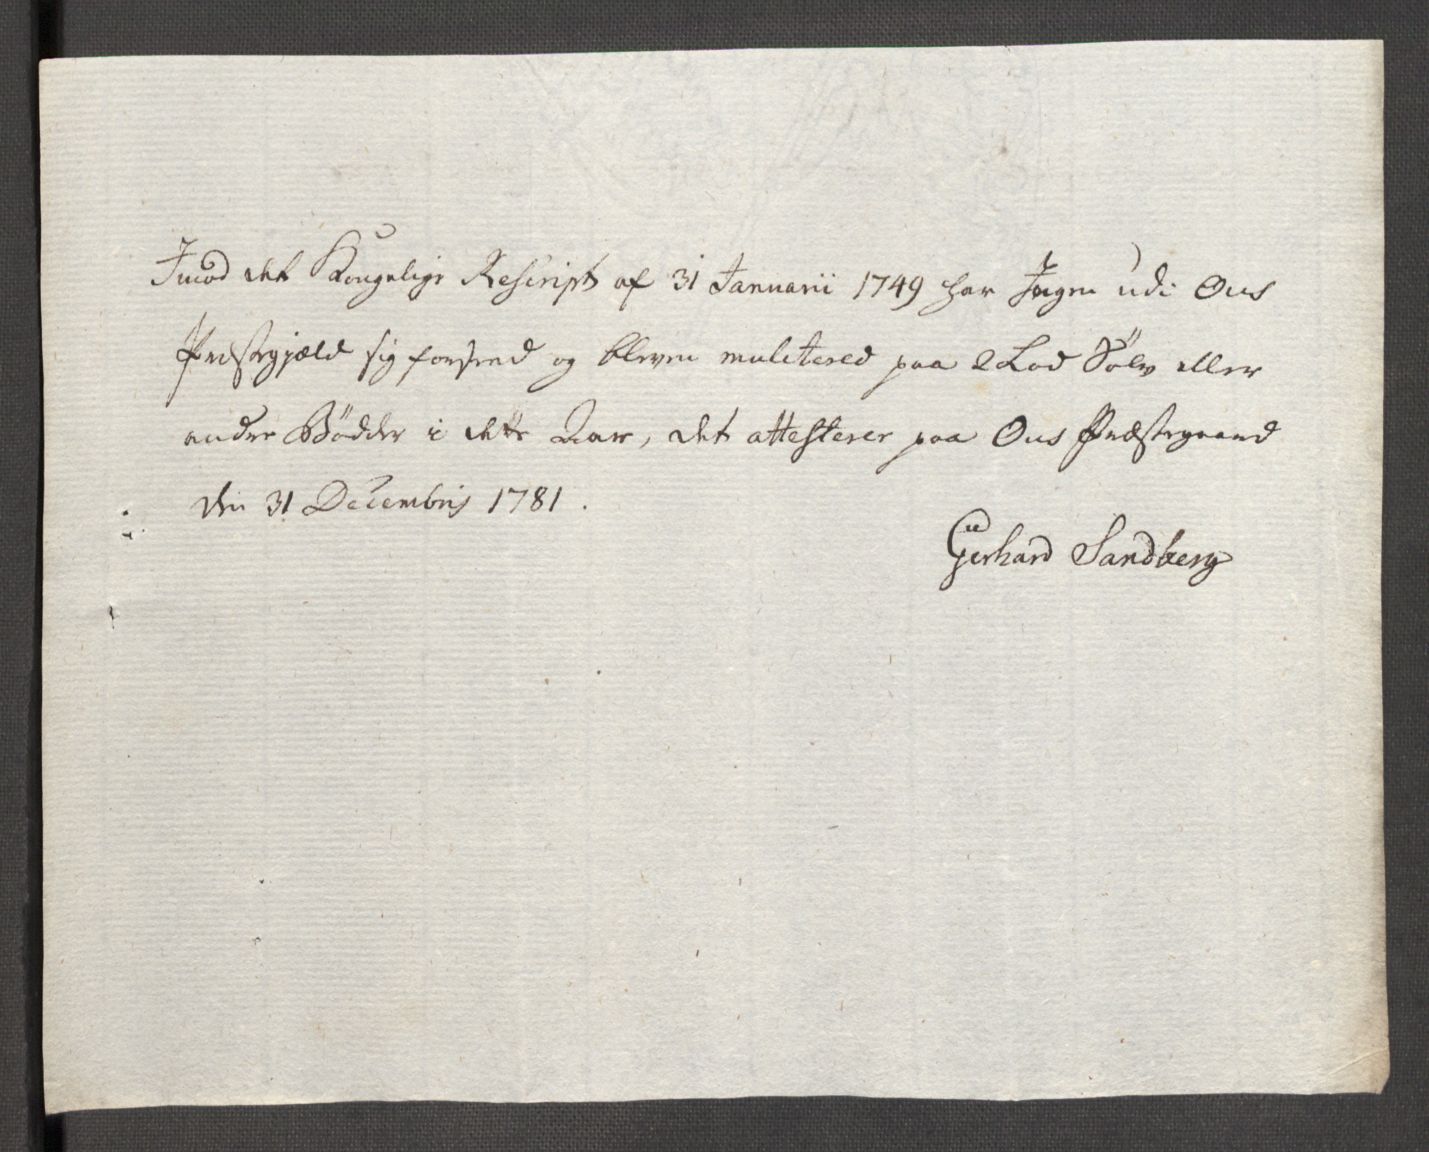 Imod det Kongelige Rescript af 31 Januarii 1749 har Ingen udi Ous
Præstegjæld sig forseed og bleven mulctered paa 2 Lod Sölv eller
andre Bödder i dette Aar, det attesterer paa Ous Præstegaard
den 31 Decembris 1781.
Gerhard Sandberg